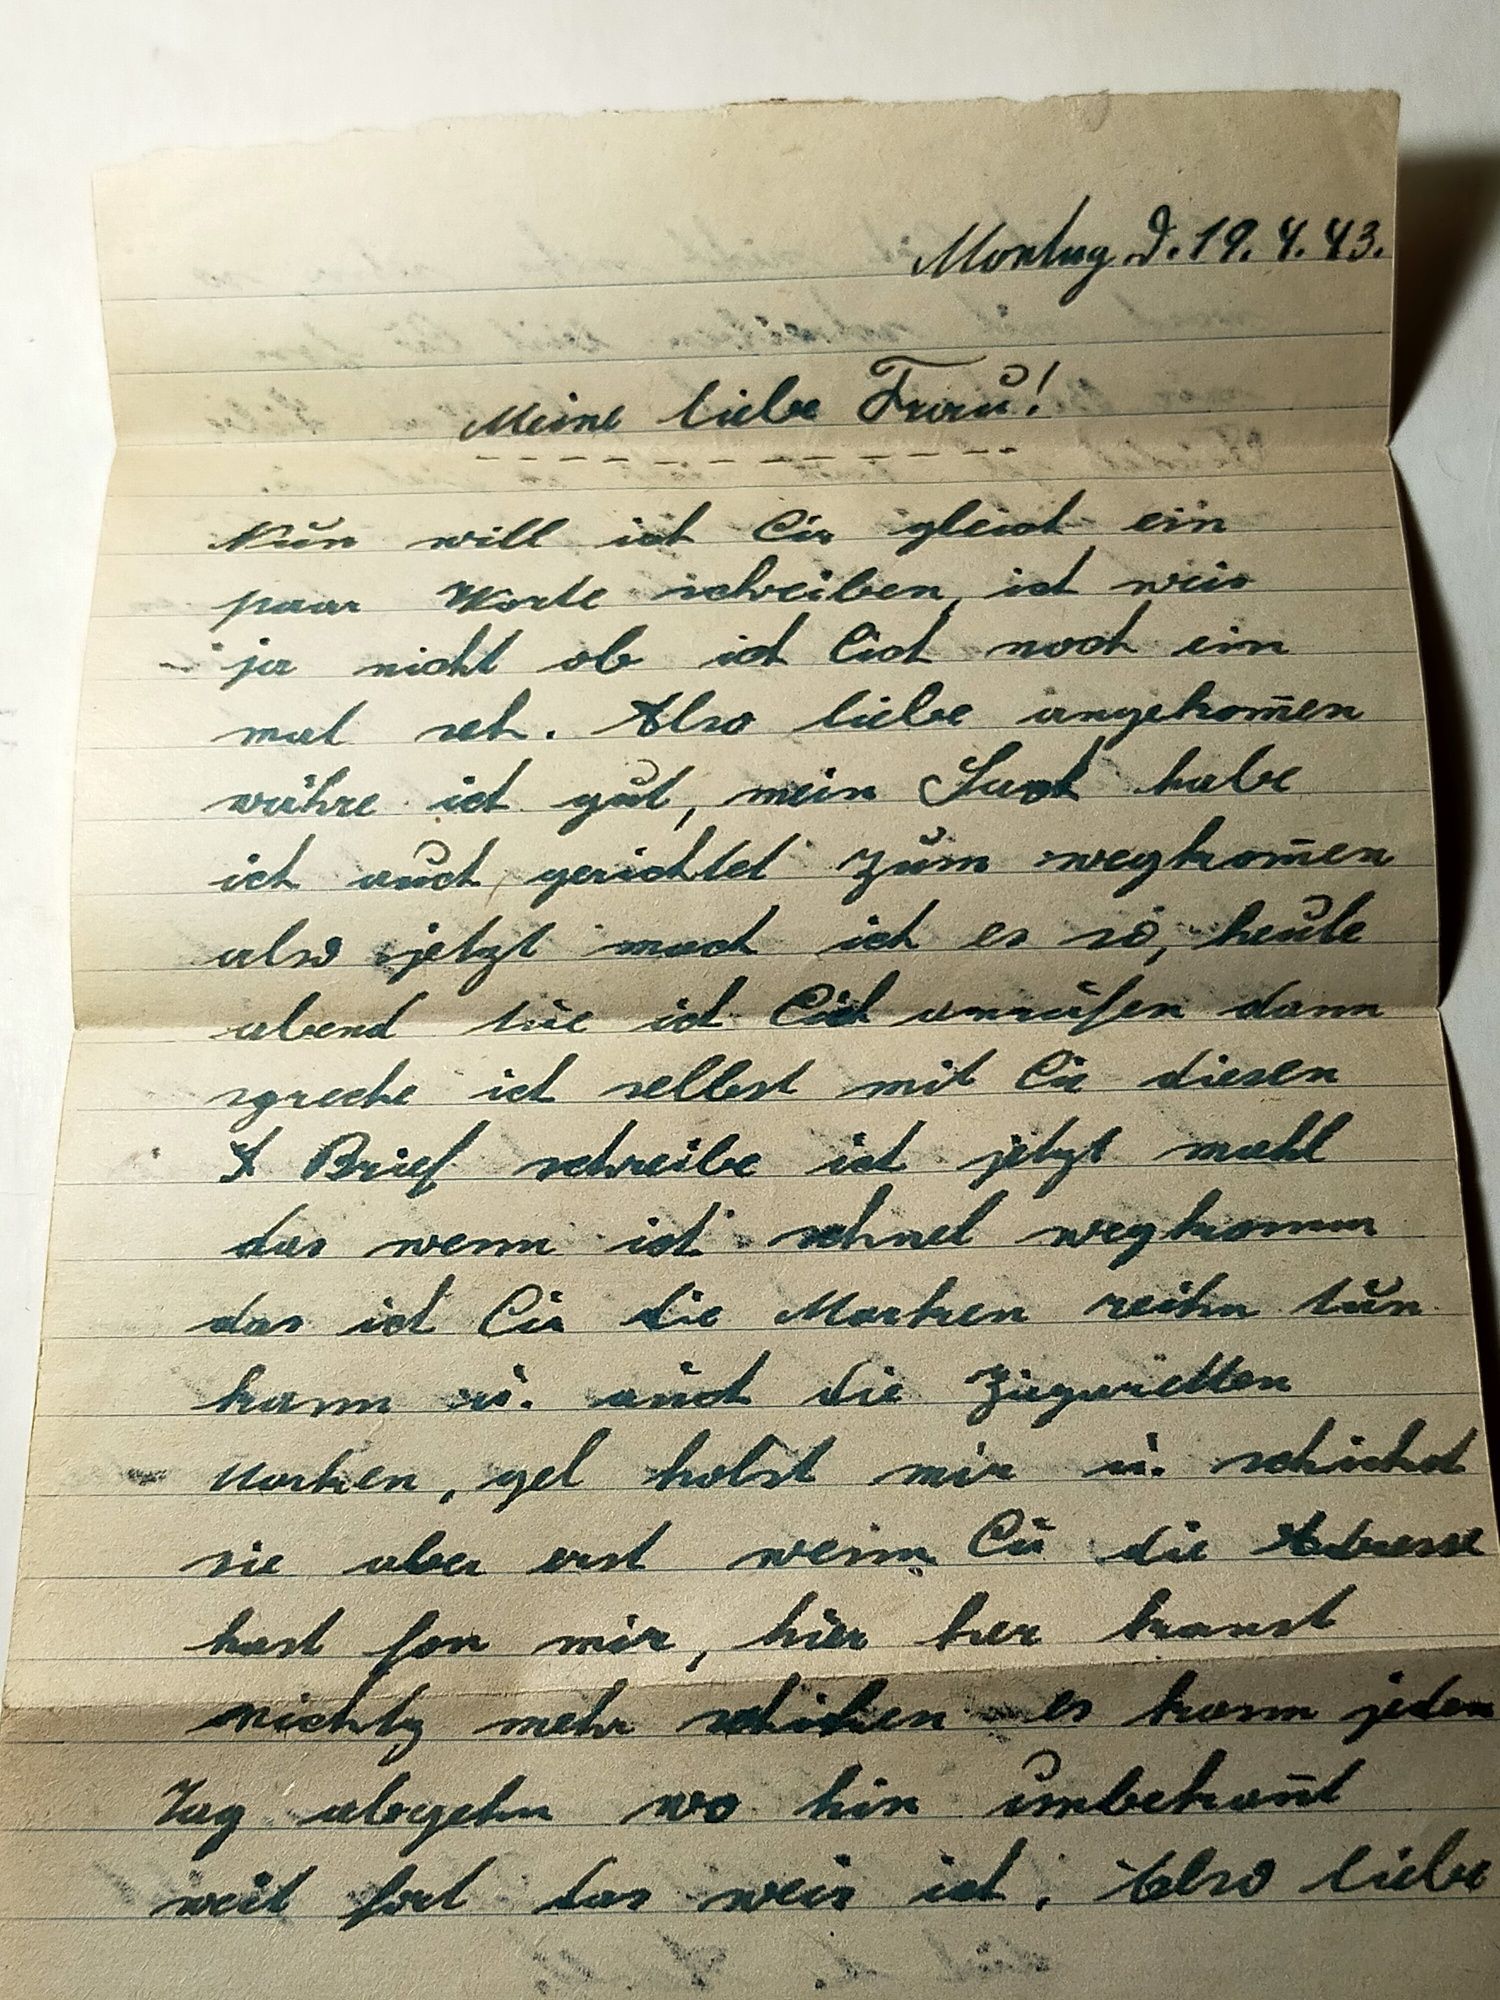 Montag d. 19. 4. 43.
Meine liebe Frau!
Nun will ich Dir gleich ein
paar Worte schreiben, ich weis
ja nicht ob ich Dich noch ein
mal seh. Also liebe angekom̄en
währe ich gut, mein Sach habe
ich auch gerichtet zum wegkom̄en
also jetzt mach ich es so, heute
abend tue ich Dich anrufen dann
spreche ich selbst mit Dir diesen
Brief schreibe ich jetzt mahl
das wenn ich schnel wegkomm
das ich Dir die Marken reihn tun
kann u. auch die Zigaretten
Marken, gel holst mir u. schickst
sie aber erst wenn Du die Adresse
hast fon mir, hier her kanst
nichtz mehr schicken es kann jeden
Tag abgehn wo hin unbekan̄t
weit fort das weis ich. Also liebe